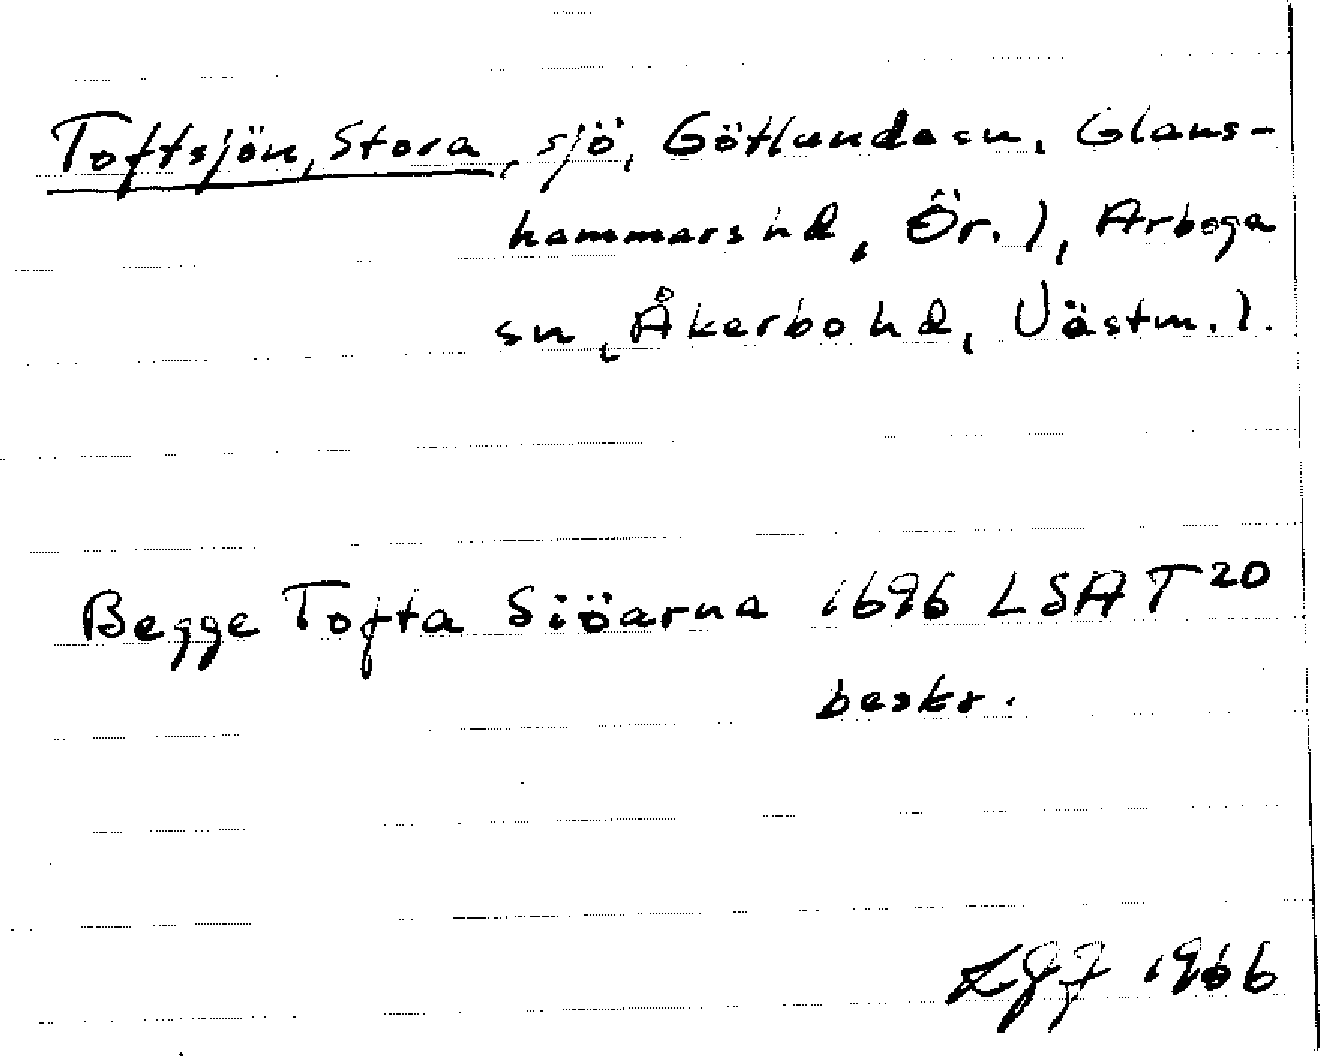 Toftsjön, Stora, sjö, Götlunda sn, Glans-
hammars hd, Ör. l, Arboga
sn, Åkerbo hd, Västm. l.
Begge Tofta Siöarna 1696 LSA T 20
beskr.
1966